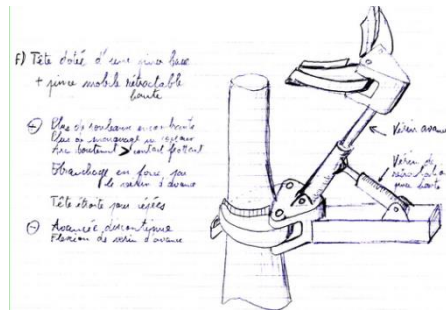 F) Tête dotée d'une pince basse
+ pince mobile rétractable
haute
⊕ Plus de rouleaux encombrants
Plus de
Arc boutement > contact frottant
Ebranchage en force par
le verin d'avance
Tête étroite pour cépées
⊖ Avancée discontinue
Flexion de verin d'avance
Vérin avance
Vérin de
pince haute